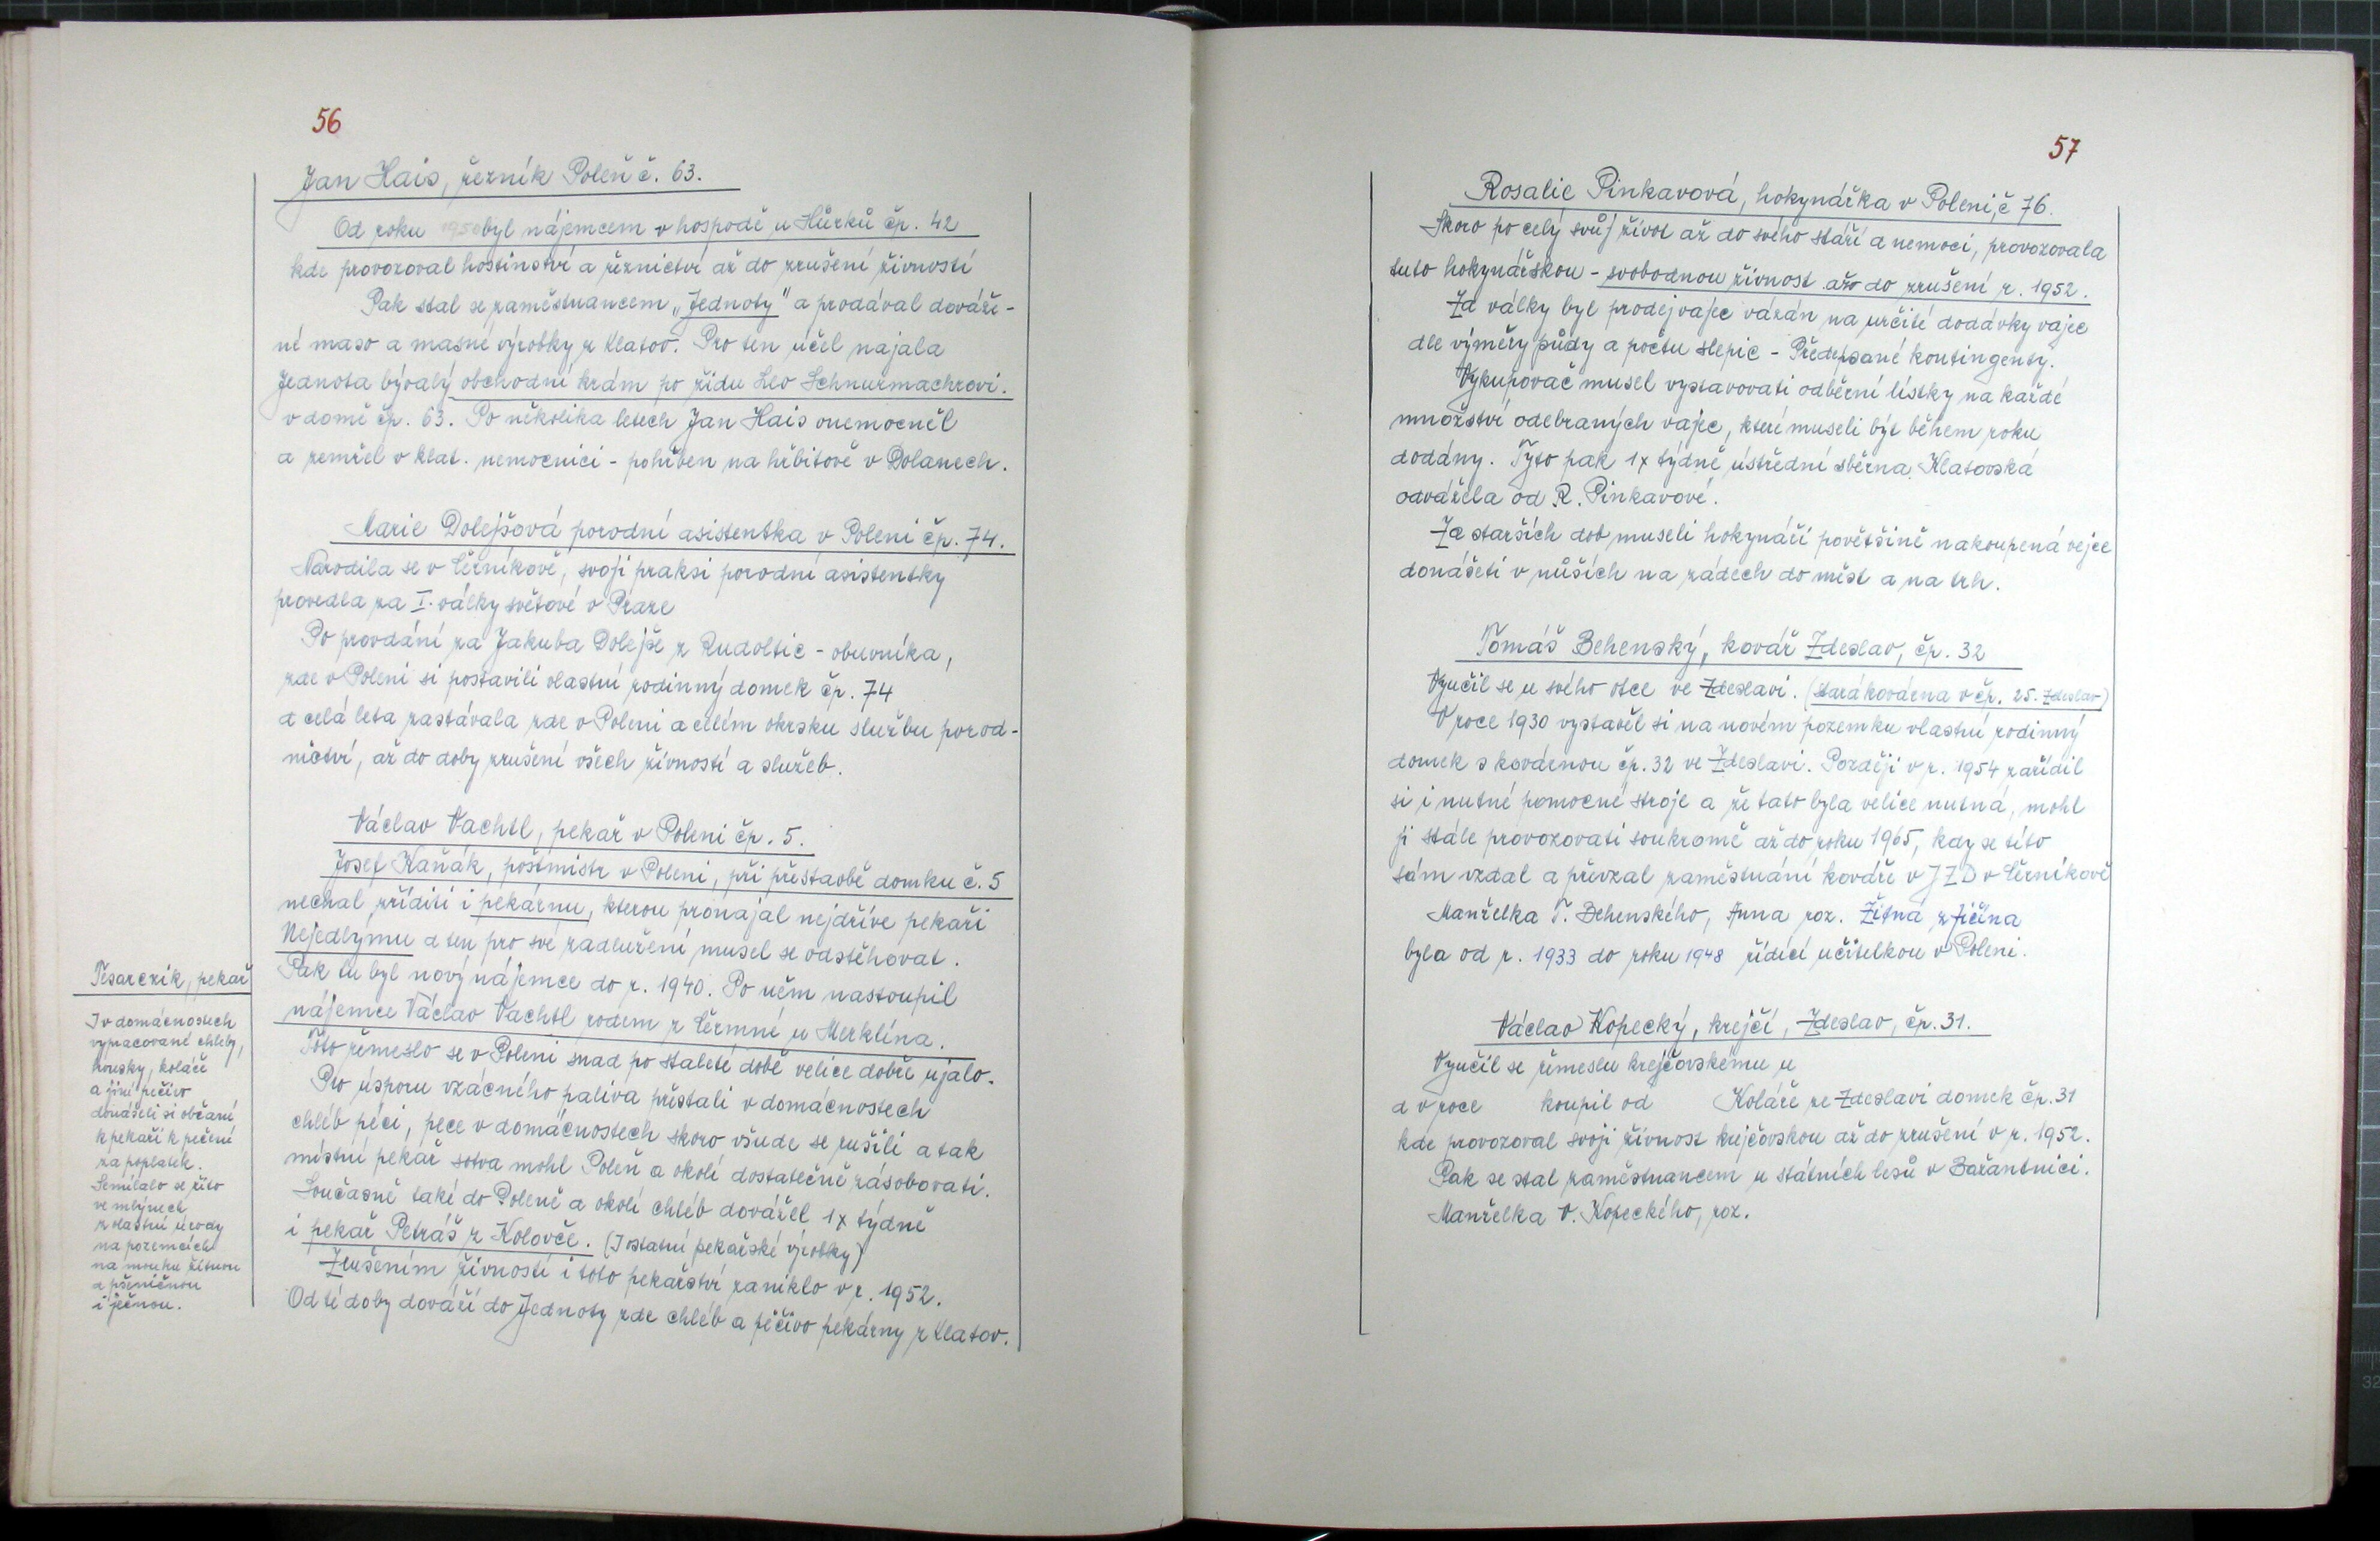 56
Jan Hais, řezník Poleň č. 63.
Od roku 1950 byl nájemcem v hospodě u Hůrků čp. 42
kde provozoval hostinství a řeznictví až do zrušení živností
Pak stal se zaměstnancem „Jednoty" a prodával dováže-
né maso a masné výrobky z Klatov. Pro ten účel najala
Jednota bývalý obchodní krám po židu Leo Schnurmachrovi.
v domě čp. 63. Po několika letech Jan Hais onemocněl
a zemřel v klat. nemocnici - pohřben na hřbitově v Dolanech.
Marie Dolejšová porodní asistentka v Poleni čp. 74.
Narodila se v Černíkově, svoji praksi porodní asistentky
provedla za I. války světové v Praze
Po provdání za Jakuba Dolejše z Rudoltic - obuvníka,
zde v Poleni si postavili vlastní rodinný domek čp. 74
a celá leta zastávala zde v Poleni a celém okrsku službu porod-
nictví, až do doby zrušení všech živností a služeb.
Václav Vachtl, pekař v Poleni čp. 5.
Josef Kaňák, poštmistr v Poleni, při přestavbě domku č. 5
nechal zříditi i pekárnu, kterou pronajal nejdříve pekaři
Nejedlýmu a ten pro své zadlužení musel se odstěhovat.
Tesarczik, pekař
Pak tu byl nový nájemce do r. 1940. Po něm nastoupil
nájemce Václav Vachtl rodem z Čermné u Merklína.
Toto řemeslo se v Poleni snad po staleté době velice dobře ujalo.
Pro úsporu vzácného paliva přestali v domácnostech
chléb péci, pece v domácnostech skoro všude se zušili a tak
místní pekař sotva mohl Poleň a okolí dostatečně zásobovati.
Současně také do Poleně a okolí chléb dovážel 1x týdně
i pekař Petráš z Koloveče. (I ostatní pekařské výrobky)
Zrušením živností i toto pekařství zaniklo v r. 1952.
Od té doby dováží do Jednoty zde chléb a pečivo pekárny z Klatov.
I v domácnostech
vypracované chleby,
housky, koláče
a jiné pečivo
donášeli si občané
k pekaři k pečení
za poplatek.
Semílalo se žito
ve mlýnech
z vlastní úrody
na pozemcích
na mouku žitnou
a pšeničnou
i ječnou.
57
Rosalie Pinkavová, hokynářka v Poleni, č 76.
Skoro po celý svůj život až do svého stáří a nemoci, provozovala
tuto hokynářskou - svobodnou živnost až do zrušení r. 1952.
Za války byl prodej vajec vázán na určité dodávky vajec
dle výměry půdy a počtu slepic - Předepsané kontingenty.
Vykupovač musel vystavovati odběrní lístky na každé
množství odebraných vajec, které museli být během roku
dodány. Tyto pak 1x týdně ústřední sběrna Klatovská
odvážela od R. Pinkavové.
Za starších dob museli hokynáři povětšině nakoupená vejce
donášeti v nůších na zádech do měst a na trh.
Tomáš Behenský, kovář Zdeslav, čp. 32
Vyučil se u svého otce ve Zdeslavi. (stará kovárna v čp. 25. Zdeslav)
V roce 1930 vystavěl si na novém pozemku vlastní rodinný
domek s kovárnou čp. 32 ve Zdeslavi. Později v r. 1954 zařídil
si i nutné pomocné stroje a že tato byla velice nutná, mohl
ji stále provozovati soukromě až do roku 1965, kdy se této
sám vzdal a převzal zaměstnání kováře v JZD v Černíkově
Manželka T. Behenského, Anna roz. Žitná z Jičína
byla od r. 1933 do roku 1948 řídící učitelkou v Poleni.
Václav Kopecký, krejčí, Zdeslav, čp. 31.
Vyučil se řemeslu krejčovskému u
a v roce koupil od Koláře ze Zdeslavi domek čp. 31
kde provozoval svoji živnost krejčovskou až do zrušení v r. 1952.
Pak se stal zaměstnancem u státních lesů v Bažantnici.
Manželka V. Kopeckého, roz.